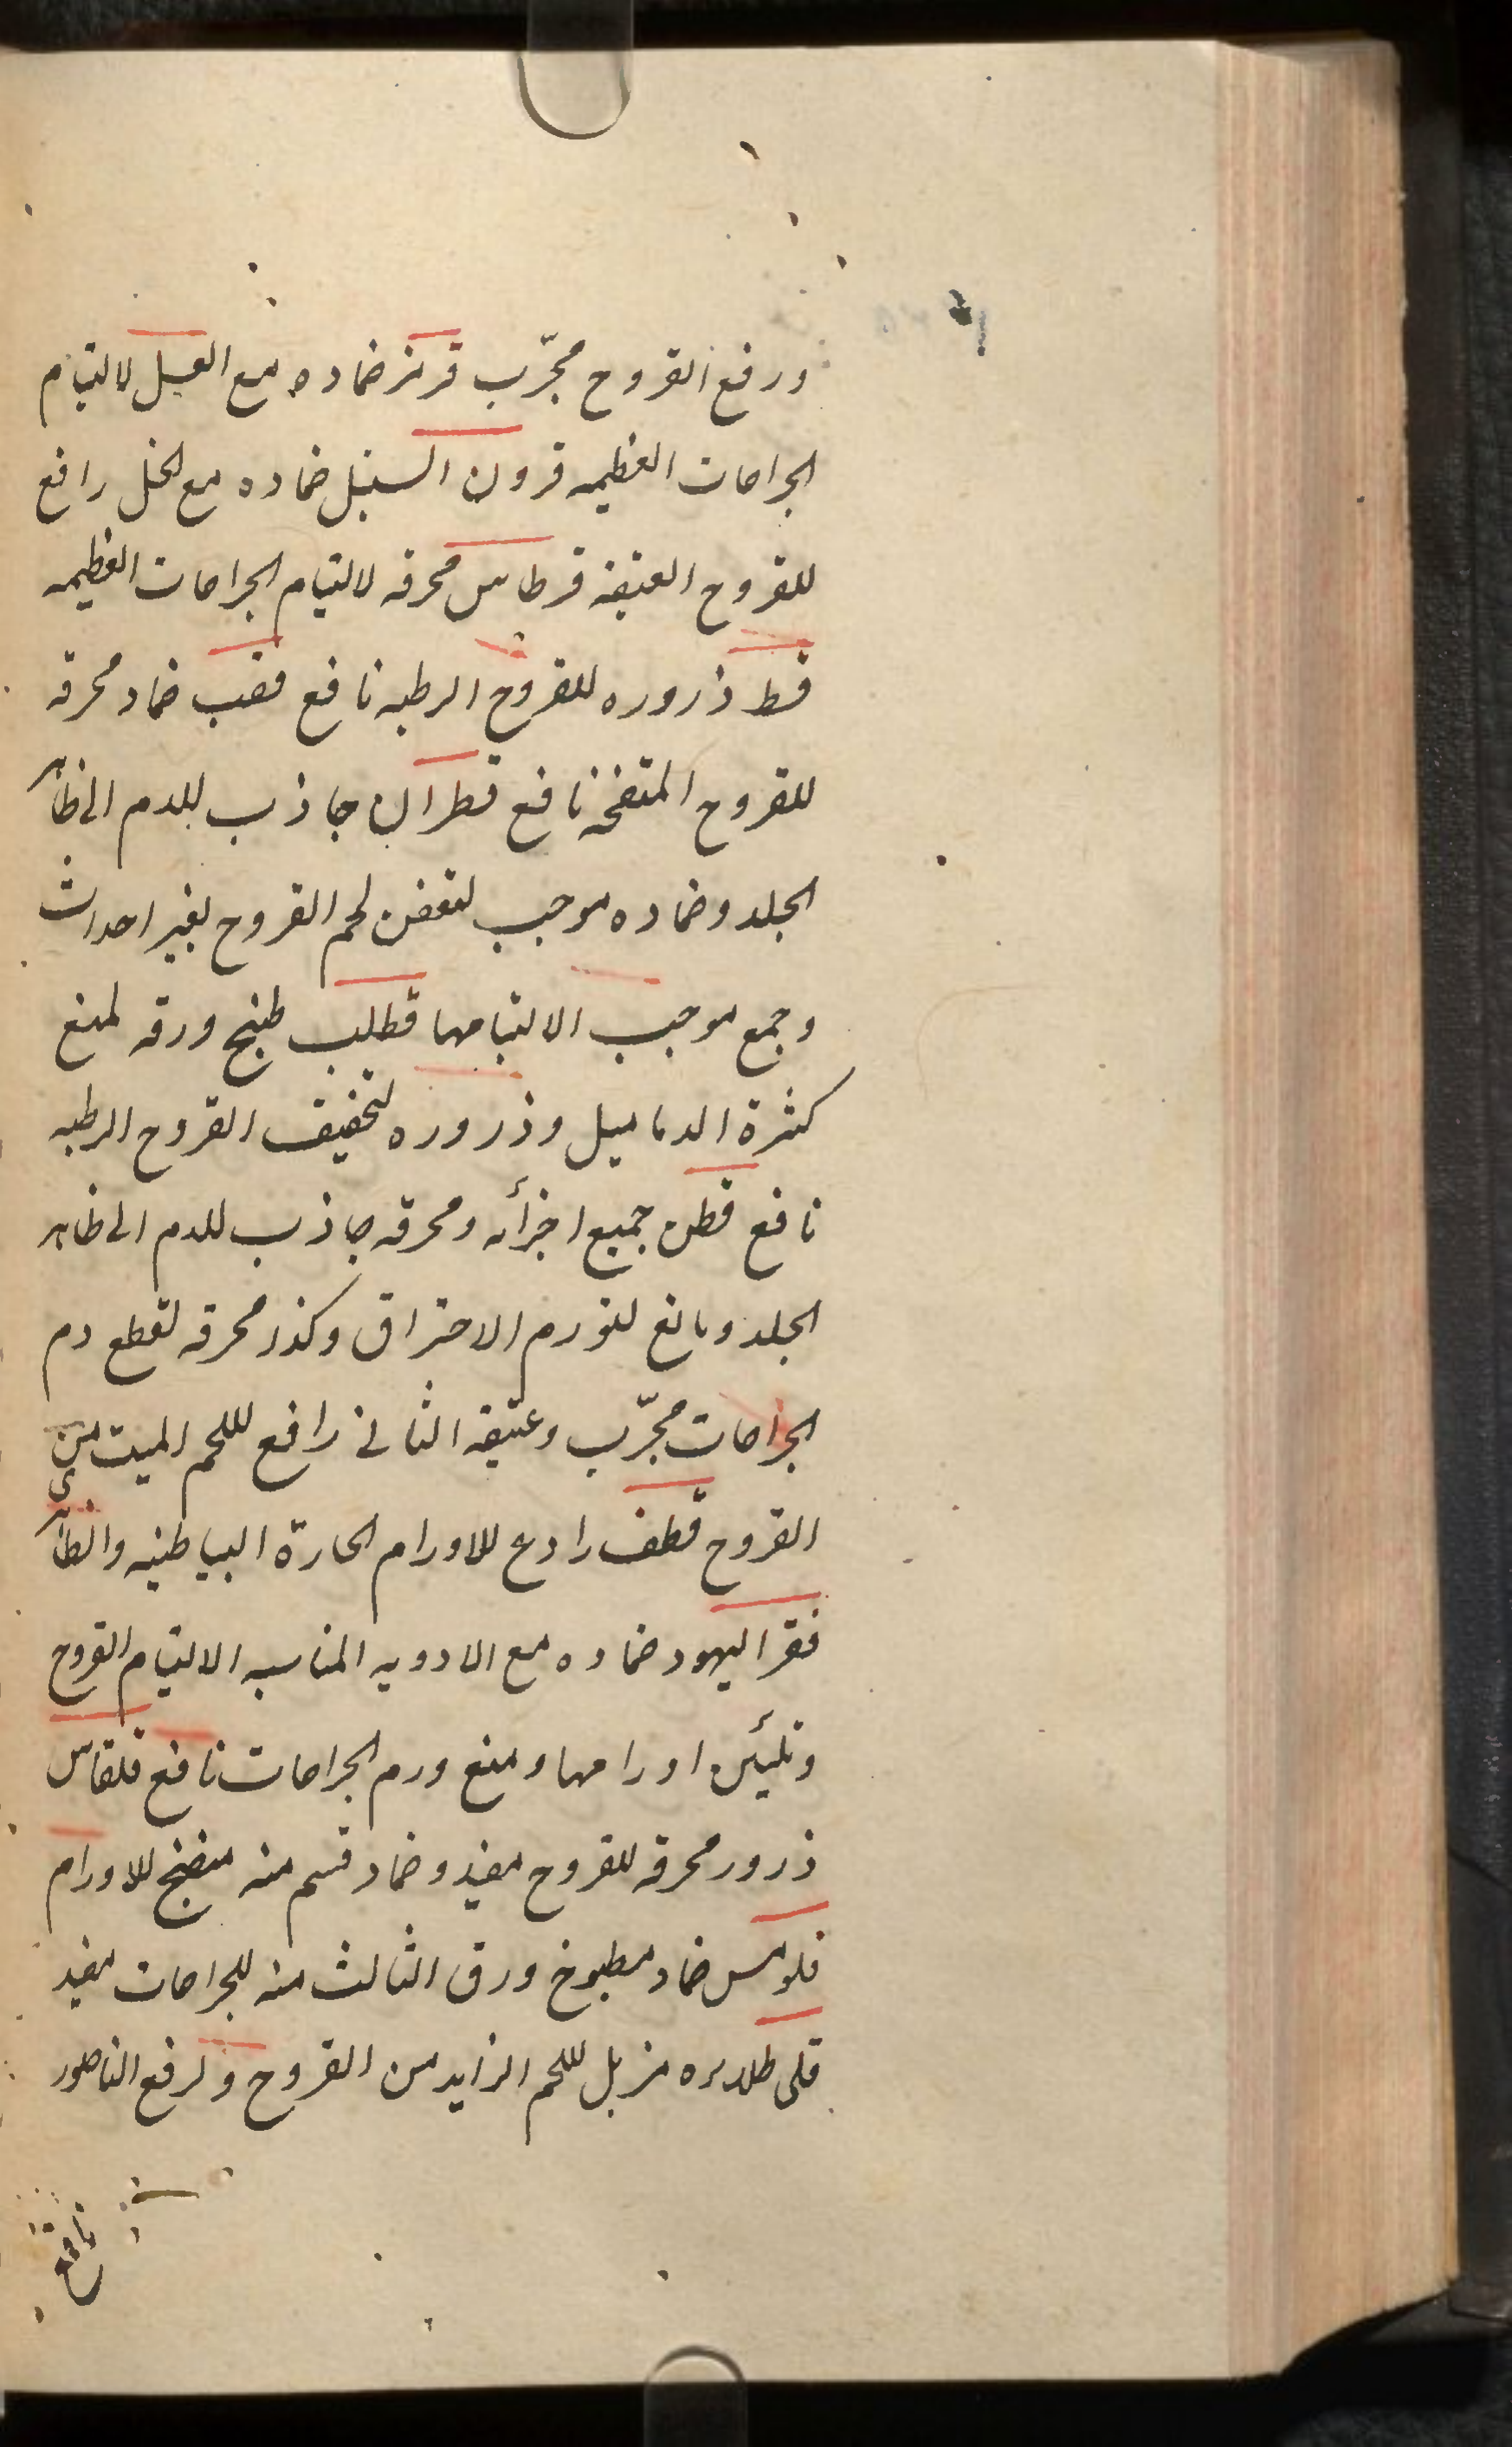 ورفع القروح مجرّب قرمز ضماده مع العسل لالتیام
الجراحات العظیمه قرون السنبل ضماده مع الخل رافع
للقروح العتیقه قرطاس محرقه لالتیام الجراحات العظیمه
قسط ذروره للقروح الرطبه نافع قصب ضماد محرقه
للقروح المتقخه نافع قطران جاذب للدم الی ظاهر
الجلد وضماده موجب لتعفن لحم القروح بغیر احداث
وجمع موجب الالتیامها قطلب طبخ ورقه لمنع
کثرة الدمامیل وذروره لتخفیف القروح الرطبه
نافع قطن جمیع اجزأه ومحرقه جاذب للدم الی ظاهر
الجلد ومانع لتورم الاحتراق وکذر محرقه لقطع دم
الجراحات مجرّب وعتیقه الثانی رافع للحم المیت من
القروح قطف رادع للاورام الحارة البیاطنیه والظاهر
فقر الیهود ضماده مع الادویه المناسبه الالتیام القروح
وتلیین اورامها ومنع ورم الجراحات نافع قلقاس
ذرور محرقه للقروح مفید وضماد قسم منه منضج للاورام
فلومس ضماد مطبوخ ورق الثالث منه للجراحات مفید
قلی طلایره مزیل للحم الزاید من القروح ولرفع الناصور
نافع